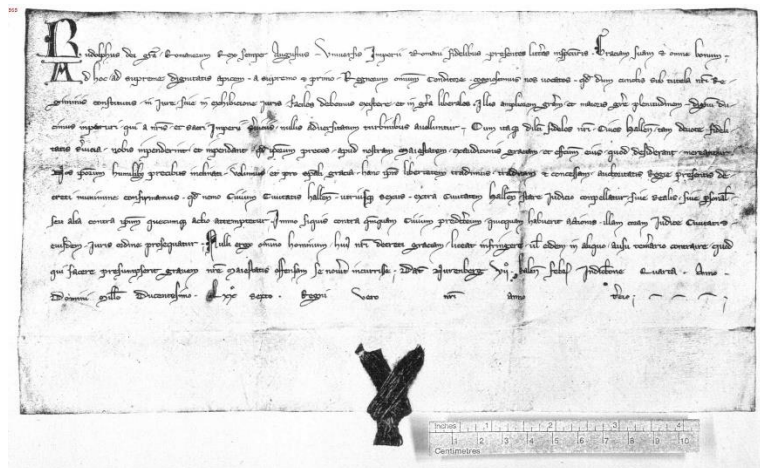 Rudolphus dei gra Romanorum Rex semper Augustus. Universis Imperii Romani fidelibus presentes litteras inspecturis. Graciam suam et omne bonum.
Ad hoc ad supreme dignitatis apicem a supremo et primo Regnorum omnium Conditore nos vocatos. qd dum cunctos sub tutela nri Re-
giminis constitutos in Jure sive in exhibicione Juris faciles debemus existere et in gra liberales. Illis ampliorem gram et maioris gre plenitudinem. dignum du-
cimus impartiri qui a nris et sacri Imperii serviciis nullis adversitatum turbinibus avelluntur. Cum itaque dilecti fideles nri Cives tam devote fideli-
tatis servicia nobis impenderint et impendant. qd ipsorum preces apud nostram maiestatem exaudicionis graciam et effectum eius quod desiderant mereantur.
Nos ipsorum humilibus precibus inclinati. volumus et pro spali gracia hanc ipsis libertatem tradimus traditam et concessam auctoritatis Regie presentis de-
creti munimine confirmamus. qd nemo Civium Civitatis utriusque sexus extra Civitatem stare Judicio compellatur. sive Realis sive psonal
seu alia contra ipsum quecumque actio attemptetur. Immo siquis contra quemquam Civium predictorum quicquam habuerit actionis. illam coram Judice Civitatis
eiusdem Juris ordine prosequatur. Nulli ergo omnino hominum huius nri decreti graciam. liceat infringere. vel eidem in aliquo ausu temerario contraire quod
qui facere presumpserit gravem nre maiestatis offensam se noverit incurrisse. Dat Nurenberg kaln febr. Indictione Quarta. Anno
Domini Millo Ducentesimo. Lxx° sexto. Regni vero nri anno tercio
Inches 1 2 3 4
1 2 3 4 5 6 7 8 9 10
Centimetres